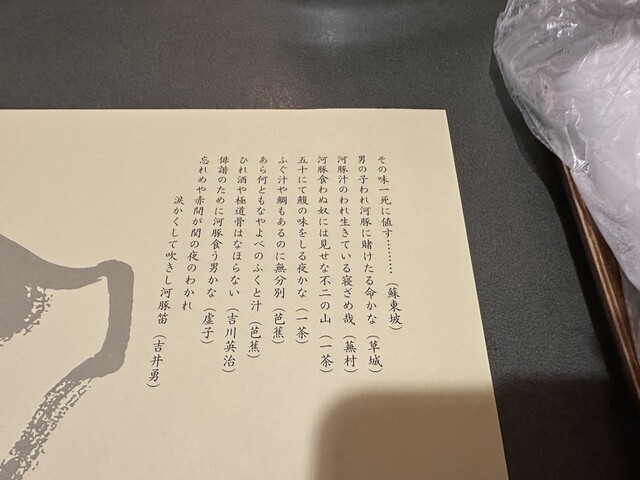 その味一死に値す………（蘇東坡）
男の子われ河豚に賭けたる命かな（草城）
河豚汁のわれ生きている寝ざめ哉（蕪村）
河豚食わぬ奴には見せな不二の山（一茶）
五十にて鰒の味をしる夜かな（一茶）
ふぐ汁や鯛もあるのに無分別（芭蕉）
あら何ともなやよべのふくと汁（芭蕉）
ひれ酒や極道骨はなほらない（吉川英治）
俳諧のために河豚食う男かな（虚子）
忘れめや赤間が関の夜のわかれ
涙かくして吹きし河豚笛（吉井勇）